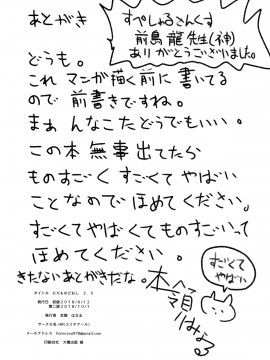 あとがき
すぺしゃるさんくす
前島 龍 先生(神)
ありがとうございました。
どうも。
これ マンガ描く前に 書いてる
ので 前書きですね。
まぁ んなこたどうでもいい。
この本 無事 出てたら
ものすごく すごくて やばい
ことなので ほめてください。
すごくて やばくて ものすごいって
ほめて ください。
きたないあとがきだな。
すごくて
やばい
本領
はなる
発行日 初版2018/8/12
第二版2018/10/1
発行者 本領 はなる
印刷会社 大陽出版 様